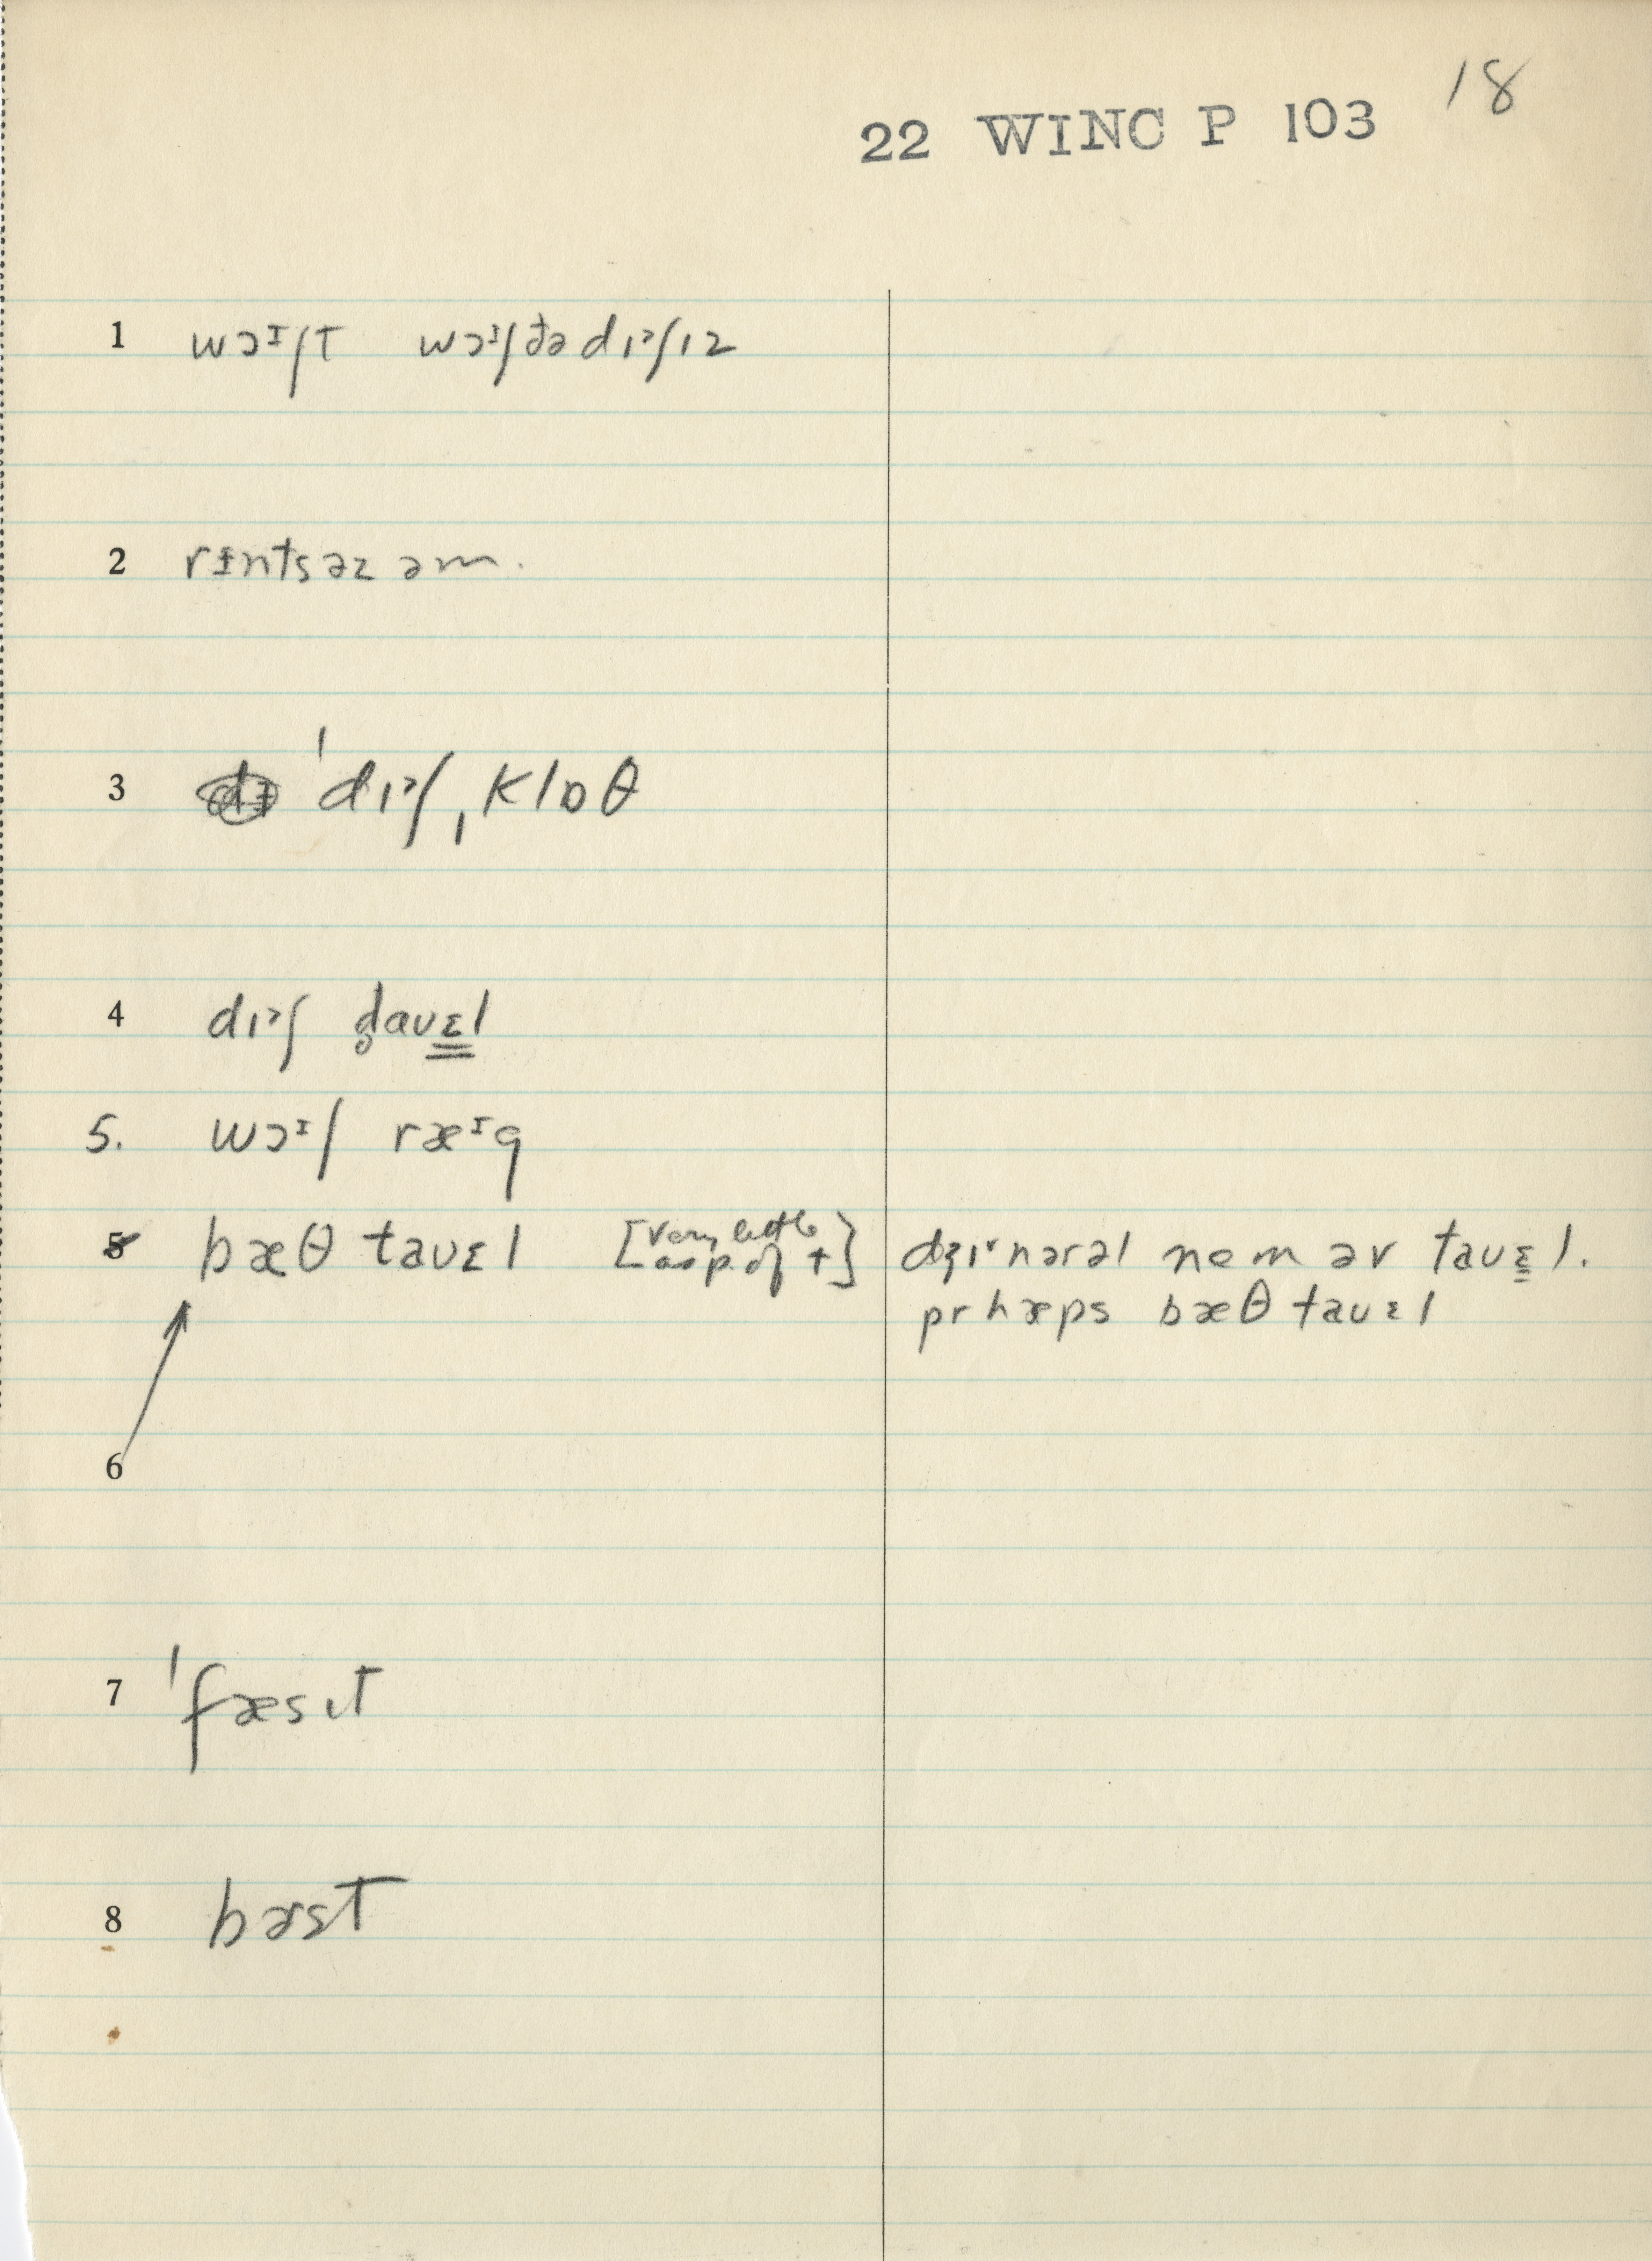 22 WINC P 103 18
1 wɔᶦʃt wɔᶦʃðə dɪᵊʃɪz
2 rɪntsəz əm.
3 ˈdɪᵊʃˌklɒθ
4 dɪᵊʃ d̥aʊɛ̳l
5. wɔᶦʃ ræᶦg
5 bæθ taʊɛl [very little asp. of t] dʒɪˑnərəl nem əv taʊɛ̳l.
prhæps bæθ taʊɛl
6
7 ˈfæsɪt
8 bɚst